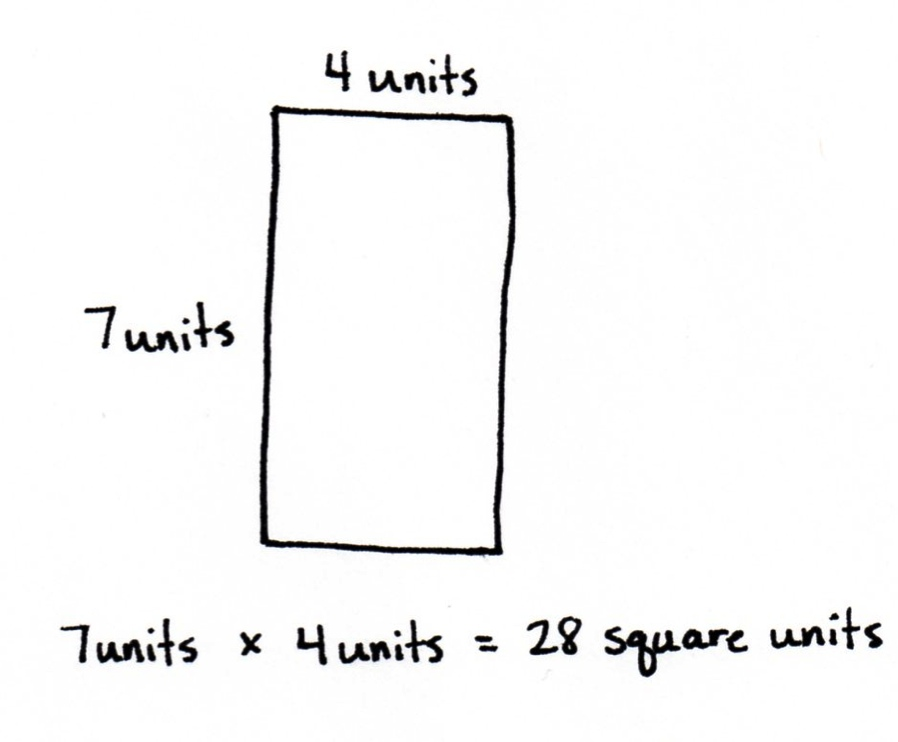 4 units
7 units
7 units × 4 units = 28 square units